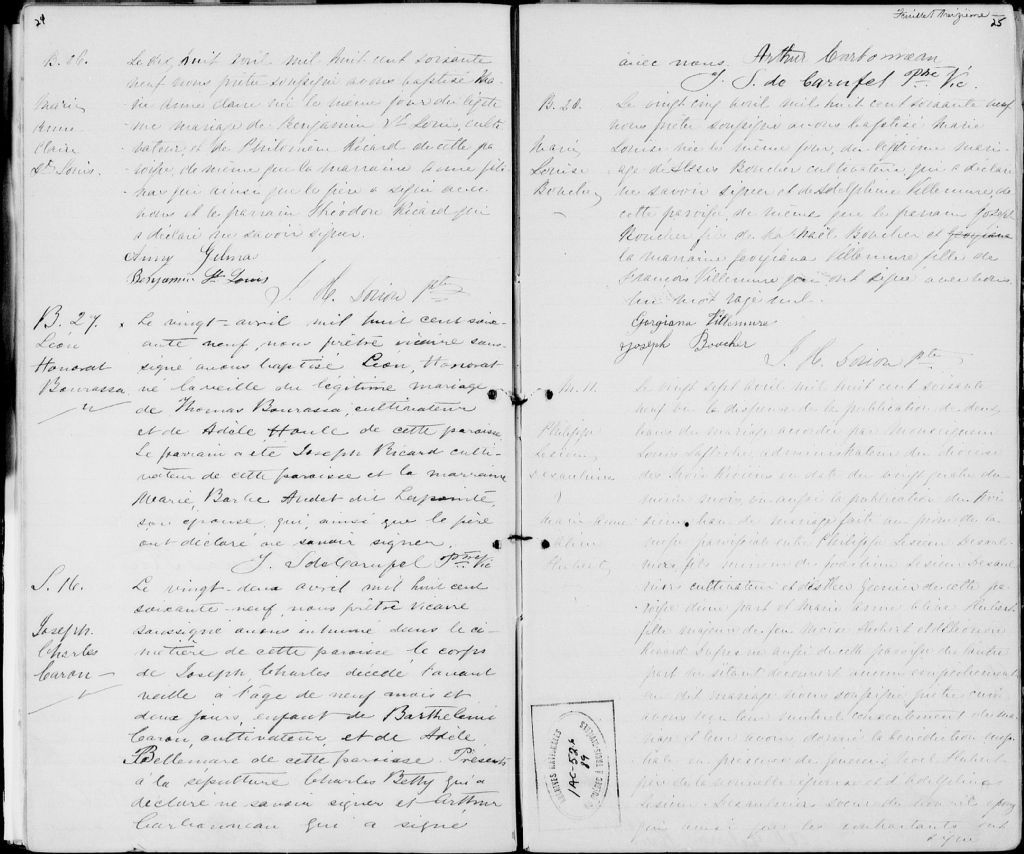 24
B. 26.
Marie
Anne
Claire
St. Louis.
Le dix huit avril mil huit cent soixante
neuf nous prêtre soussigné avons baptisé Ma-
rie Anne Claire née le même jour du légiti-
me mariage de Benjamin St. Louis, culti-
vateur, et de Philomène Ricard de cette pa-
roisse, de même que la marraine
qui ainsi que le père a signé avec
nous et le parrain Théodore Ricard qui
a déclaré ne savoir signer.
Benjamin St. Louis
Ptre
B. 27.
Léon
Honorat
Bourassa
Le vingt avril mil huit cent soix-
ante neuf, nous prêtre vicaire sous-
signé avons baptisé Léon, Honorat
né la veille du légitime mariage
de Thomas Bourassa, cultivateur
et de Adèle Houle de cette paroisse
Le parrain a été Joseph Ricard culti-
vateur de cette paroisse et la marraine
Marie, Audet dit Lapointe,
son épouse qui, ainsi que le père
ont déclaré ne savoir signer.
J. S. de Carufel Ptre Vic
S. 16.
Joseph
Charles
Caron
Le vingt-deux avril mil huit cent
soixante-neuf nous prêtre Vicaire
soussigné avons inhumé dans le ci-
metière de cette paroisse le corps
de Joseph, Charles décédé l'avant
veille à l'age de neuf mois et
deux jours, enfant de Barthelemi
Caron, cultivateur, et de Adèle
Bellemare de cette paroisse. Présents
à la sépulture Charles Betty qui a
déclaré ne savoir signer et Arthur
Carbonneau qui a signé
Feuillet treizième
25
avec nous. Arthur Carbonneau
J. S. de Carufel Ptre Vic.
B. 28.
Marie
Louise
Boucher
Le vingt cinq avril mil huit cent soixante neuf
nous prêtre soussigné avons baptisé Marie
Louise née le même jour, du légitime mari-
age de Boucher cultivateur, qui a déclaré
ne savoir signer et de Adelphine Villemure, de
cette paroisse, de même que le parrain Joseph
Boucher fils de Boucher et Georgiana
la marraine Georgiana Villemure fille de
François Villemure qui ont signé avec nous.
Un mot rayé nul.
Gorgiana Villemure
Joseph Boucher
Ptre
M. 11.
Philippe
Lesieur
Desaulniers
Marie Anne
Hubert
Le vingt sept avril mil huit cent soixante
neuf vu la dispense de la publication de deux
bans de mariage accordée par Monseigneur
Louis Laflèche, administrateur du diocèse
des Trois Rivières en date du vingt quatre du
même mois, vu aussi la publication du troi-
sième ban de mariage faite au prône de la
messe paroissiale entre Philippe Lesieur Desaul-
niers fils mineur de Lesieur Desaul-
niers cultivateur et d'Esther de cette pa-
roisse d'une part et Marie Anne Hubert
fille majeure de feu Moise Hubert et d'Eléonore
Ricard aussi de cette paroisse de l'autre
part, ne s'étant découvert aucun empêchement
au dit mariage nous soussigné prêtre curé
avons reçu leur mutuel consentement de ma-
riage et leur avons donné la bénédiction nup-
tiale en présence de Hubert
Lesieur Desaulniers soeur de
qui ainsi que les contractants ont
signé
ARCHIVES NATIONALES
1AC-526
89